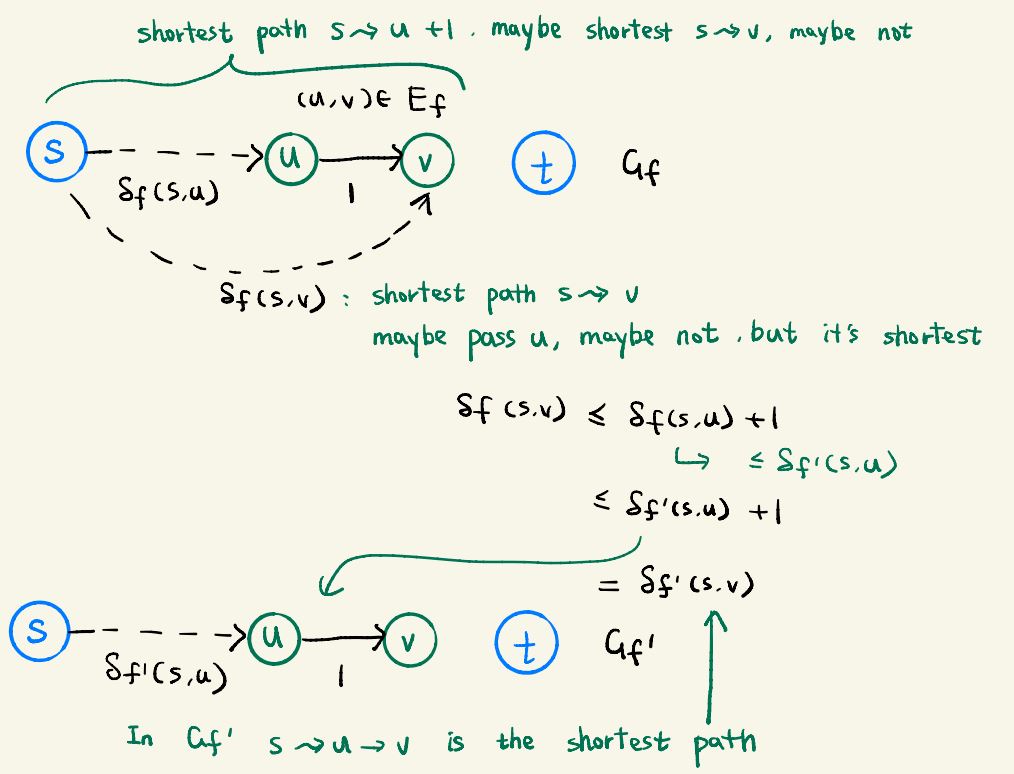 shortest path s⇝u +1. maybe shortest s⇝v, maybe not
(u,v)∈ E_f
s u v t G_f
δ_f(s,u) 1
δ_f(s,v) : shortest path s⇝v
maybe pass u, maybe not. but it's shortest
δ_f(s,v) ≤ δ_f(s,u)+1
↳ ≤ δ_f'(s,u)
≤ δ_f'(s,u) +1
= δ_f'(s,v)
s u v t G_f'
δ_f'(s,u) 1
In G_f' s⇝u→v is the shortest path